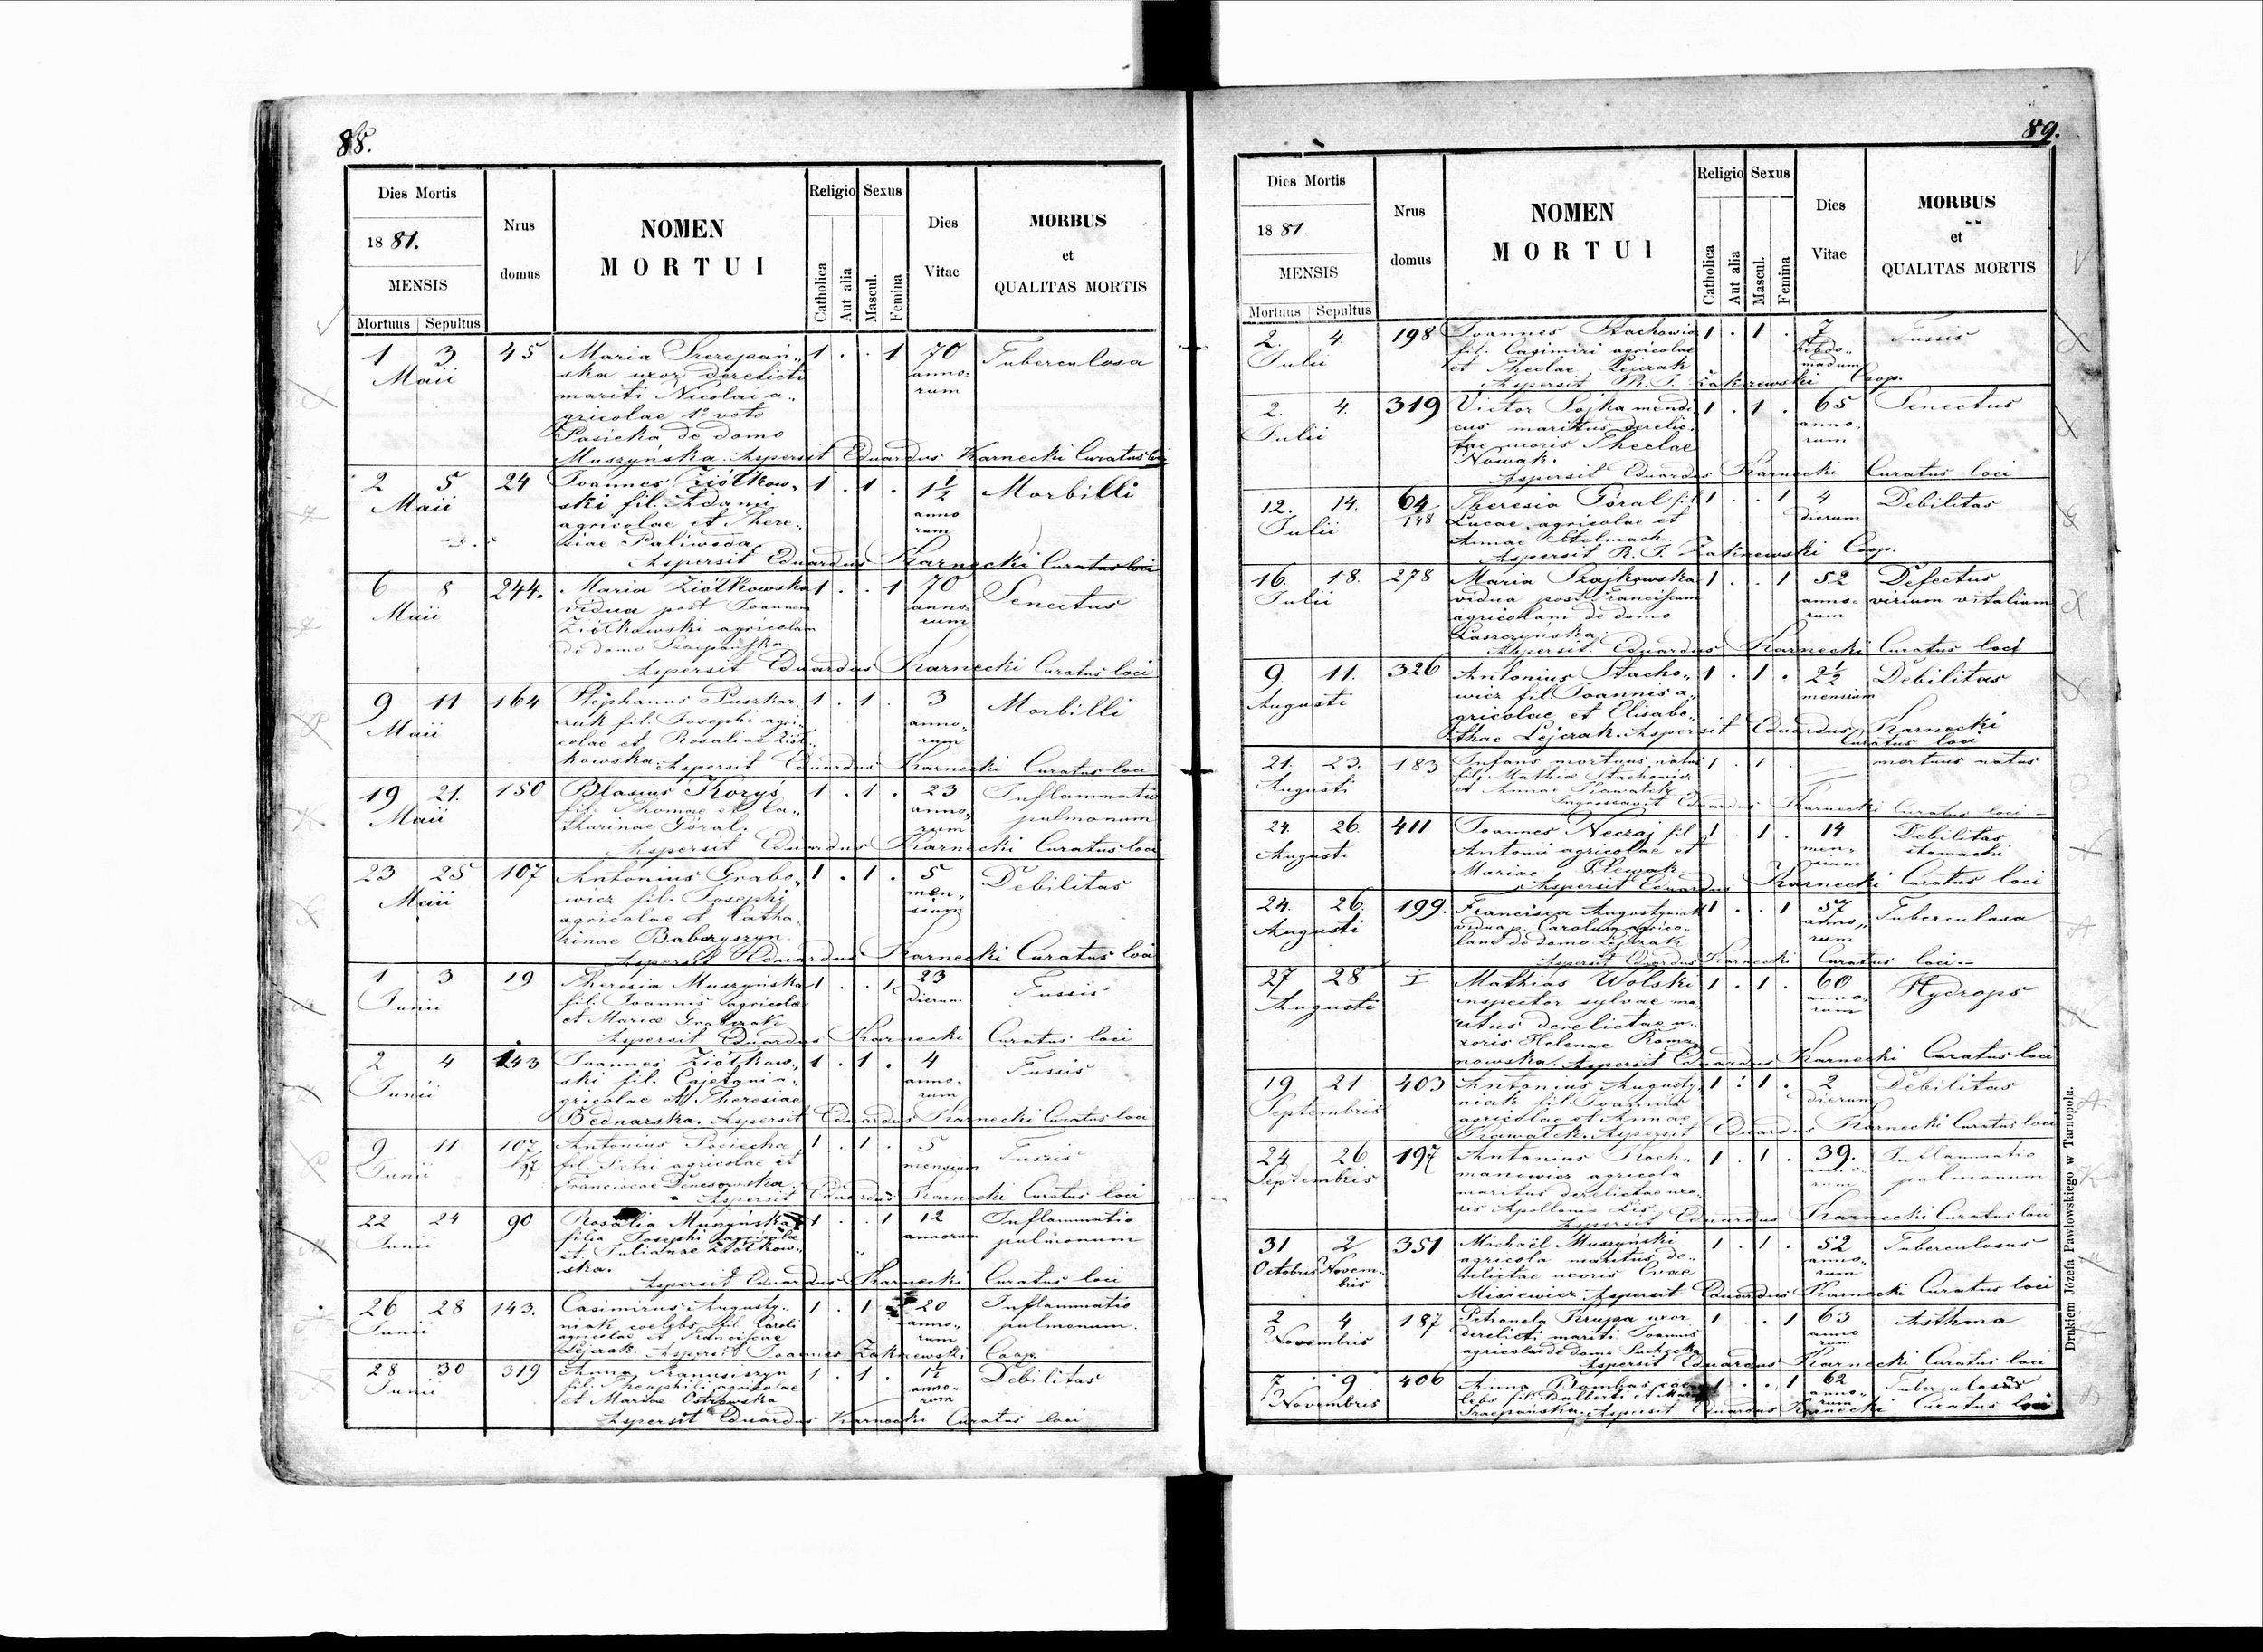 88.
Dies Mortis
1881.
MENSIS
Mortuus Sepultus
Nrus domus
NOMEN
MORTUI
Religio
Catholica
Aut alia
Sexus
Mascul.
Femina
Dies Vitae
MORBUS
et
QUALITAS MORTIS
1 3 45 Maria Szczepań- 1 . . 1 70 Tuberculosa
Maii ska uxor derelicti anno-
mariti Nicolai a- rum
gricolae 1º voto
Pasieka de domo
Muszyńska. Aspersit Eduardus Karnecki Curatus loci
2 5 24 Joannes Ziółkow- 1 . 1 . 1½ Morbilli
Maii ski fil. Adami anno
agricolae et There- rum
siae Paliwoda.
Aspersit Eduardus Karnecki Curatus loci
6 8 244. Maria Ziółkowska 1 . . 1 70 Senectus
Maii vidua post Joannem anno-
Ziółkowski agricolam rum
de domo Szczepańska.
Aspersit Eduardus Karnecki Curatus loci
9 11 164 Stephanus Puszkar- 1 . 1 . 3 Morbilli
Maii czuk fil. Josephi agri- anno-
colae et Rosaliae Ziół- rum
kowska. Aspersit Eduardus Karnecki Curatus loci
19 21. 150 Blasius Koryś 1 . 1 . 23 Inflammatio
Maii fil. Thomae et Ca- anno- pulmonum
tharinae Góral. rum
Aspersit Eduardus Karnecki Curatus loci
23 25 107 Antonius Grabo- 1 . 1 . 5 Debilitas
Maii wicz fil. Josephi men-
agricolae et Catha- sium
rinae Babaryszyn.
Aspersit Eduardus Karnecki Curatus loci
1 3 19 Theresia Muszyńska 1 . . 1 23 Tussis
Junii fil. Joannis agricolae dierum
et Mariae
Aspersit Eduardus Karnecki Curatus loci
2 4 143 Joannes Ziółkow- 1 . 1 . 4 Tussis
Junii ski fil. Cajetani a- anno-
gricolae et Theresiae rum
Bednarska. Aspersit Eduardus Karnecki Curatus loci
9 11 107 Antonius Pociecha 1 . 1 . 5 Tussis
Junii fil. Petri agricolae et mensium
Franciscae
Aspersit Eduardus Karnecki Curatus loci
22 24 90 Rosalia Muszyńska 1 . . 1 12 Inflammatio
Junii filia Josephi agricolae annorum pulmonum
et Julianae Ziółkow-
ska.
Aspersit Eduardus Karnecki Curatus loci
26 28 143. Casimirus Augusty- 1 . 1 20 Inflammatio
Junii niak coelebs fil. Caroli anno- pulmonum.
agricolae et Franciscae rum
Lejczak. Aspersit Joannes Zakrzewski Coop.
28 30 319 Anna 1 . 1 . 1½ Debilitas
Junii fil. Theophili agricolae anno-
et Mariae Ostrowska rum
Aspersit Eduardus Karnecki Curatus loci
89.
Dies Mortis
1881.
MENSIS
Mortuus Sepultus
Nrus domus
NOMEN
MORTUI
Religio
Catholica
Aut alia
Sexus
Mascul.
Femina
Dies Vitae
MORBUS
et
QUALITAS MORTIS
2. 4. 198 Joannes Stachowicz 1 . 1 . 7 Tussis
Julii fil. Casimiri agricolae hebdo-
et Theclae Lejczak madum
Aspersit R. J. Zakrzewski Coop.
2. 4. 319 Victor Sojka mendi- 1 . 1 . 65 Senectus
Julii cus maritus derelic- anno-
tae uxoris Theclae rum
Nowak.
Aspersit Eduardus Karnecki Curatus loci
12. 14. 64/148 Theresia Góral fil. 1 . . 1 4 Debilitas
Julii Lucae agricolae et dierum
Annae Stelmach.
Aspersit R. J. Zakrzewski Coop.
16. 18. 278 Maria Szajkowska 1 . . 1 52 Defectus
Julii vidua post Franciscum anno- virium vitalium
agricolam de domo rum
Laszczyńska.
Aspersit Eduardus Karnecki Curatus loci
9. 11. 326 Antonius Stacho- 1 . 1 . 2½ Debilitas
Augusti wicz fil. Joannis a- mensium
gricolae et Elisabe-
thae Lejczak. Aspersit Eduardus Karnecki
Curatus loci
21. 23. 183 Infans mortuus natus 1 . 1 . mortuus natus
Augusti fil. Mathiae Stachowicz
et Annae
Ingrossavit Eduardus Karnecki Curatus loci
24. 26. 411 Joannes Neczaj fil. 1 . 1 . 14 Debilitas
Augusti Antonii agricolae et men- stomachi
Mariae Plewak sium
Aspersit Eduardus Karnecki Curatus loci
24. 26. 199. Francisca Augustyniak 1 . . 1 57 Tuberculosa
Augusti vidua p. Carolum agrico- anno-
lam de domo Lejczak rum
Aspersit Eduardus Karnecki Curatus loci
27 28 I Mathias Wolski 1 . 1 . 60 Hydrops
Augusti inspector sylvae ma- anno-
ritus derelictae u- rum
xoris Helenae Roma-
nowska. Aspersit Eduardus Karnecki Curatus loci
19 21 403 Antonius Augusty- 1 . 1 . 2 Debilitas
Septembris niak fil. Joannis dierum
agricolae et Annae
Kawalek. Aspersit Eduardus Karnecki Curatus loci
24 26 197 Antonius Troch- 1 . 1 . 39. Inflammatio
Septembris manowicz agricola anno- pulmonum
maritus derelictae uxo- rum
ris Apollonia Lis.
Aspersit Eduardus Karnecki Curatus loci
31 2 351 Michaël Muszyński 1 . 1 . 52 Tuberculosus
Octobris Novem- agricola maritus de- anno-
bris relictae uxoris Evae rum
Misiewicz Aspersit Eduardus Karnecki Curatus loci
2 4 187 Petronela Krupa uxor 1 . . 1 63 Asthma
Novembris derelicti mariti Joannis anno
agricolae de domo rum
Aspersit Eduardus Karnecki Curatus loci
7 9 406 Anna Bombas coe- 1 . . 1 62 Tuberculosa
Novembris lebs fil. Adalberti et anno-
Szczepańska. Aspersit Eduardus Karnecki Curatus loci
rum
Drukiem Józefa Pawłowskiego w Tarnopolu.